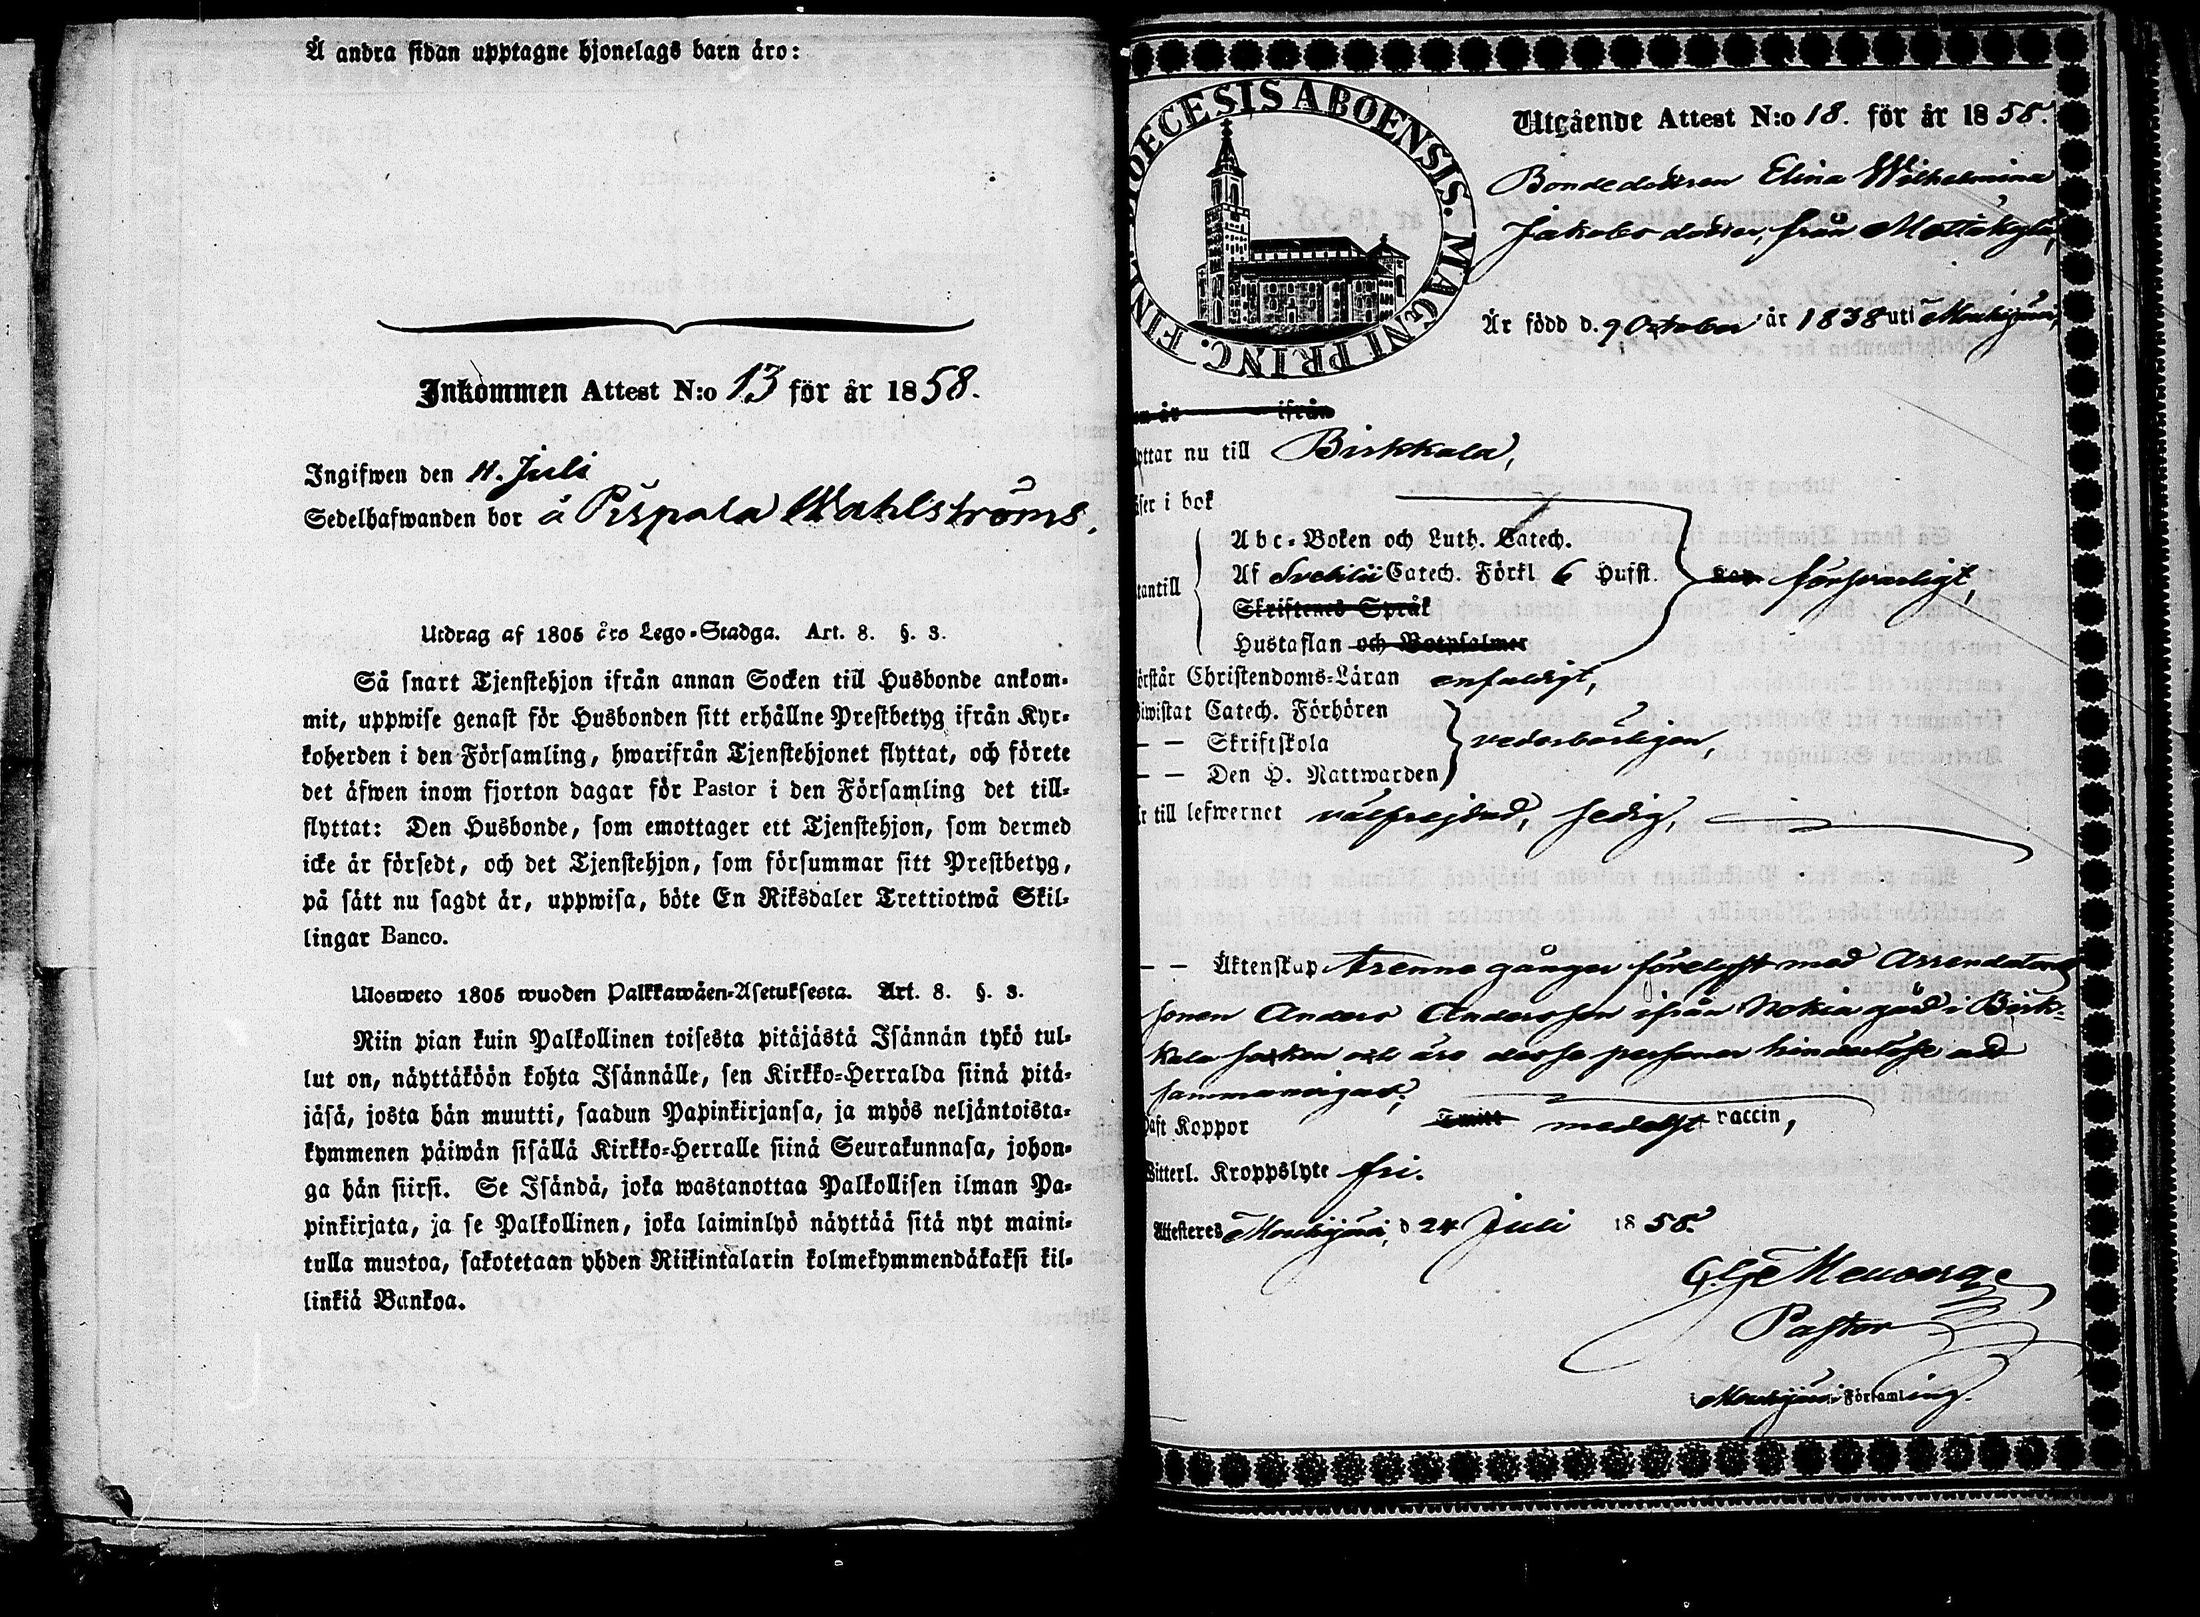 Å andra sidan upptagne hjonelags barn äro:
Inkommen Attest N:o 13 för år 1858.
Ingifwen den 11. Juli
Sedelhafwanden bor å Pispala Wahlströms.
Utdrag af 1805 års Lego-Stadga. Art. 8. §. 3.
Så snart Tjenstehjon ifrån annan Socken till Husbonde ankom-
mit, uppwise genast för Husbonden sitt erhållne Prestbetyg ifrån Kyr-
koherden i den Församling, hwarifrån Tjenstehjonet flyttat, och förete
det äfwen inom fjorton dagar för Pastor i den Församling det till-
flyttat: Den Husbonde, som emottager ett Tjenstehjon, som dermed
icke är försedt, och det Tjenstehjon, som försummar sitt Prestbetyg,
på sätt nu sagdt är, uppwisa, böte En Riksdaler Trettiotwå Skil-
lingar Banco.
Ulosweto 1805 wuoden Palkkawäen-Asetuksesta. Art. 8. §. 3.
Niin pian kuin Palkollinen toisesta pitäjästä Isännän tykö tul-
lut on, näyttäköön kohta Isännälle, sen Kirkko-Herralda siinä pitä-
jäsä, josta hän muutti, saadun Papinkirjansa, ja myös neljäntoista-
kymmenen päiwän sisällä Kirkko-Herralle siinä Seurakunnasa, johon-
ga hän siirsi. Se Isändä, joka wastanottaa Palkollisen ilman Pa-
pinkirjata, ja se Palkollinen, joka laiminlyö näyttää sitä nyt maini-
tulla muotoa, sakotetaan yhden Riikintalarin kolmekymmendäkaksi kil-
linkiä Bankoa.
DIOECESIS ABOENSIS. MAGNI PRINC. FINL.
Utgående Attest N:o 18. för år 1858.
Bondedottren Elina Wilhelmina
Jakobs dotter, från Mattikylä,
Är född d. 9 October år 1838 uti Mouhijärvi,
ifrån
yttar nu till Birkkala,
äser i bok
Abc-Boken och Luth. Catech.
Af Svebilii Catech. Förkl 6 Hufst. försvarligt,
tantill
Skriftenes Språk
Hustaflan och Botpsalmer
örstår Christendoms-Läran enfaldigt,
iwistat Catech. Förhören
— — Skriftskola vederbörligen,
— — Den H. Nattwarden
r till lefwernet välfrejdad, ledig,
— — Äktenskap trenne gånger förelyst med Arrendators
sonen Anders Andersson ifrån Nokia gård i Birk-
kala socken och äro dessa personer hinderlöse att
sammanvigas;
aft Koppor medelst vaccin,
itterl. Kroppslyte fri.
Attesteres Mouhijärvi, d 24 Juli 1858.
Pastor
i Mouhijärvi Församling.